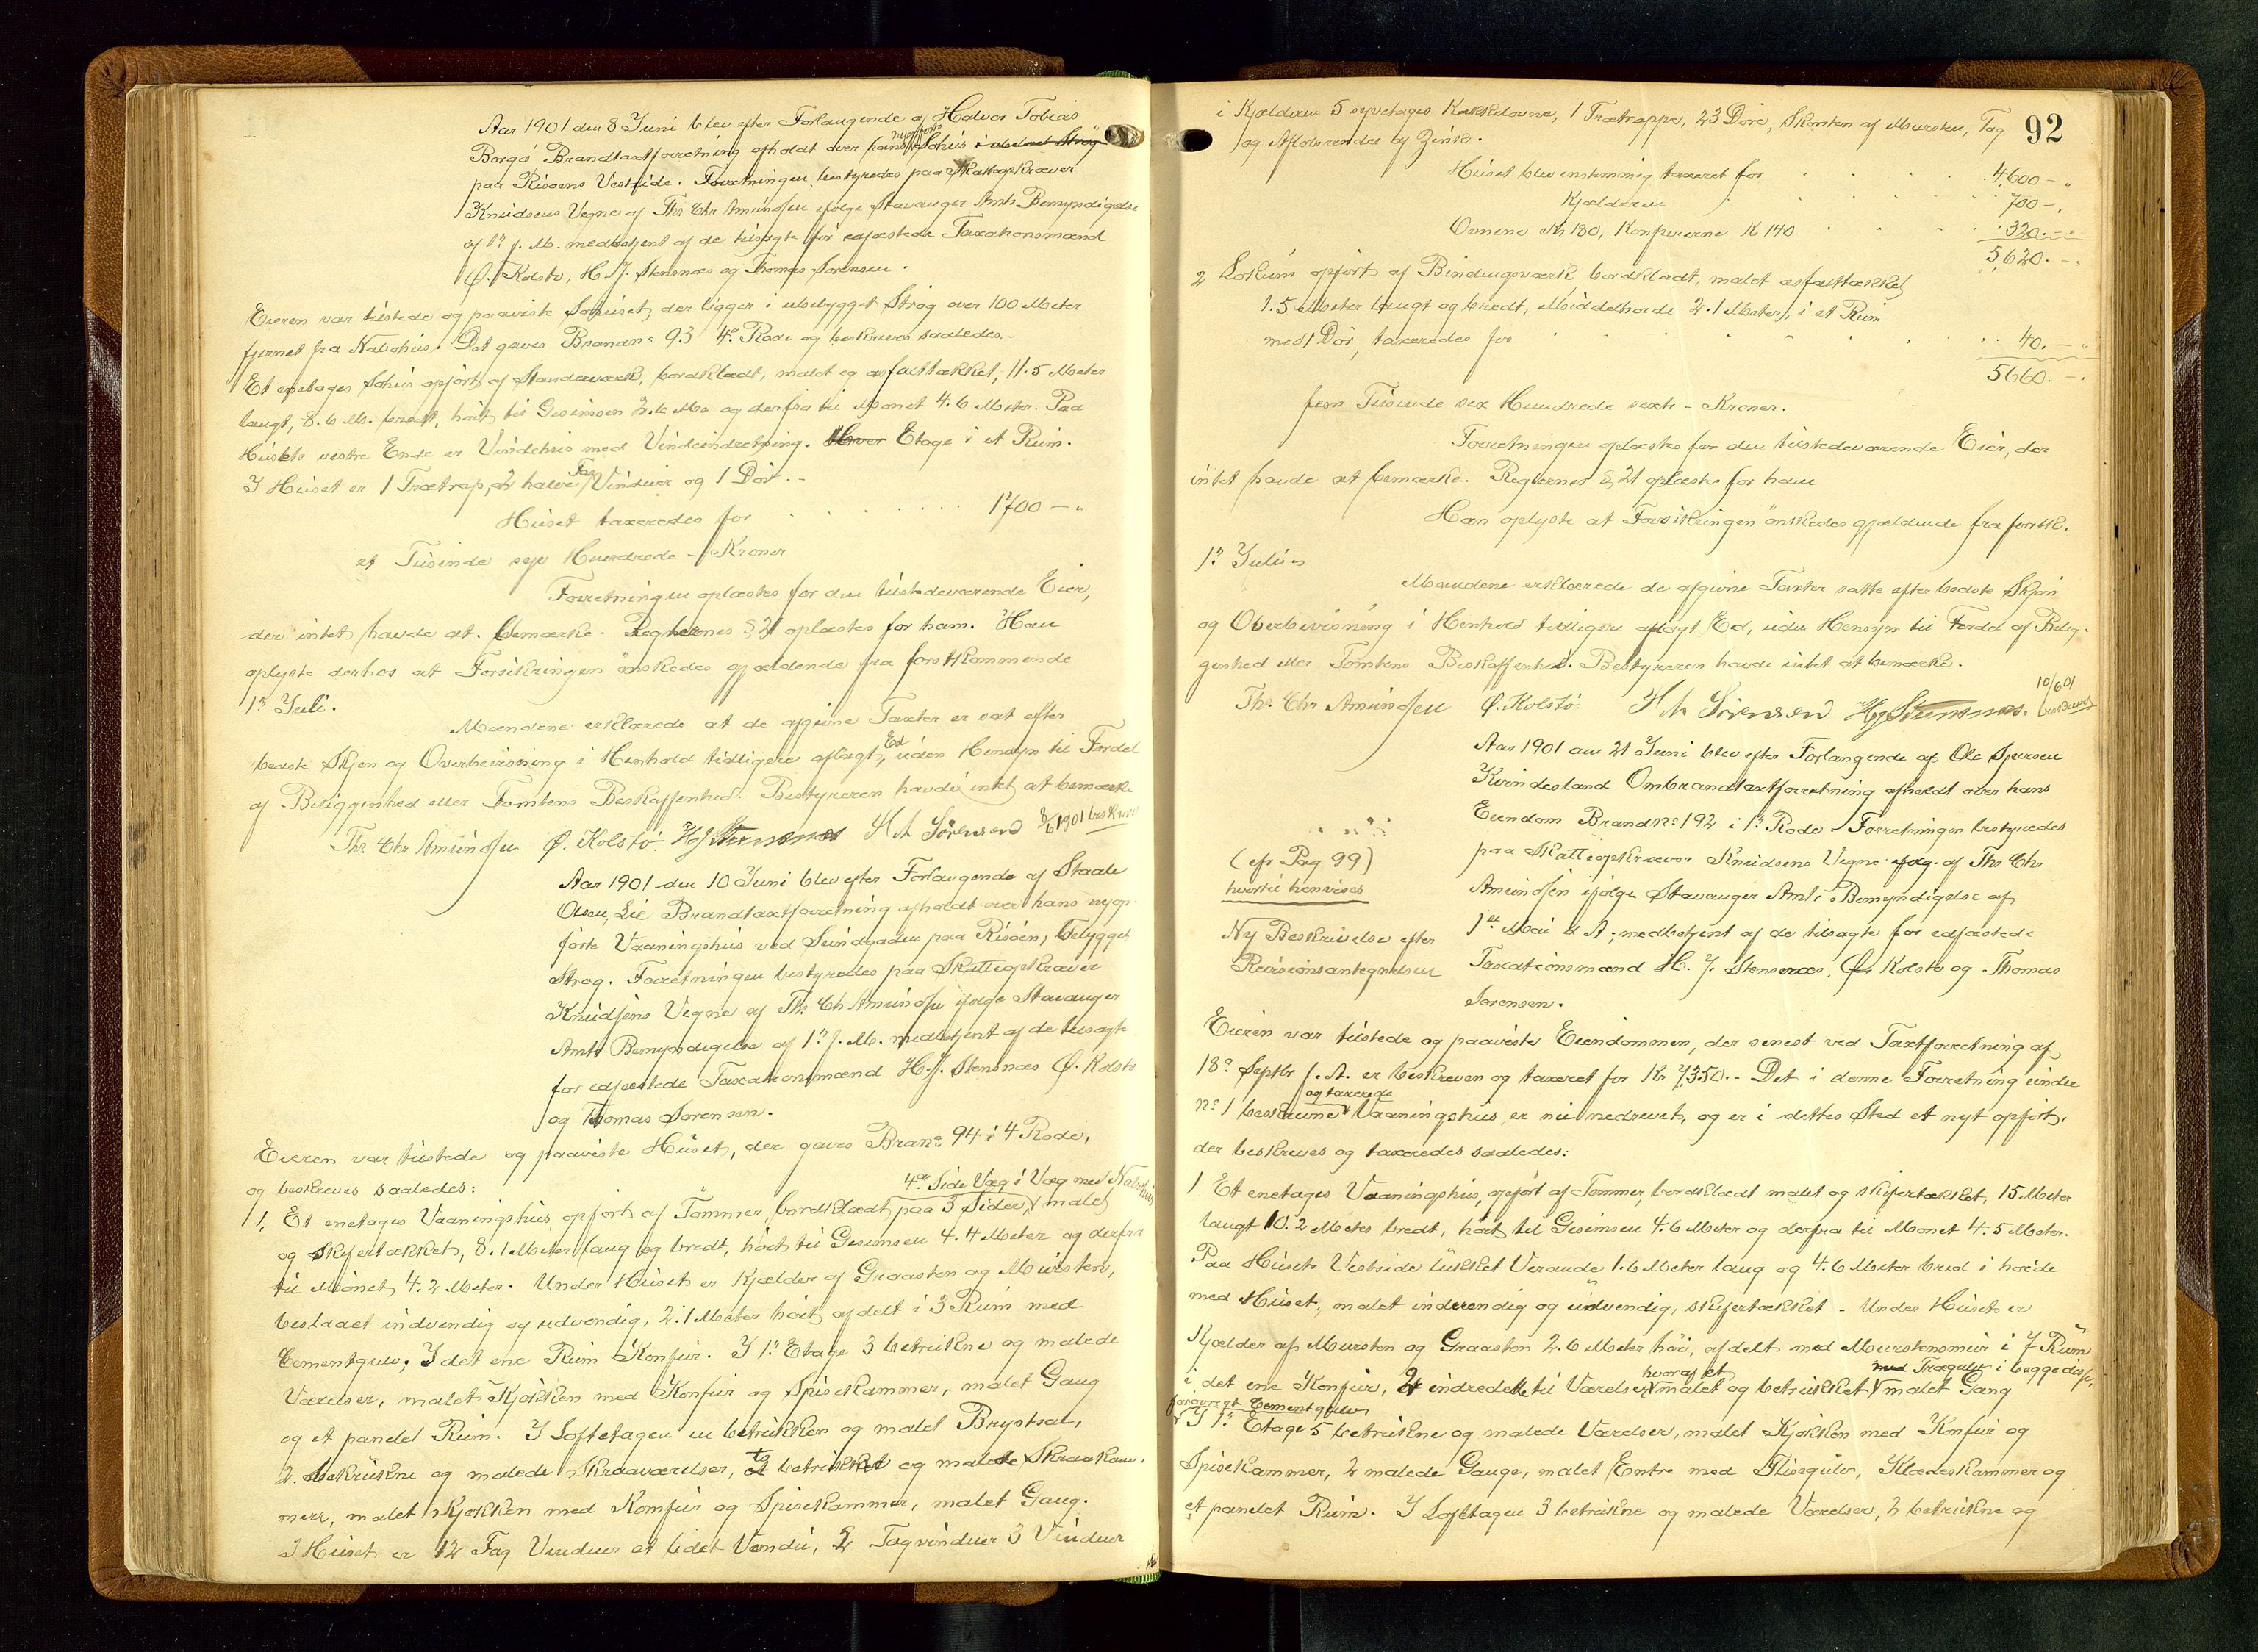 Aar 1901 den 8 Juni blev efter Forlangende af Halvor Tobias
Borgø Brandtaxtforretning afholdt over hans nyopførte Søhus i ubebygget Strøg
paa Risøens Vestside. Forretningen bestyredes paa Skatteopkræver
Knudsens Vegne af Ths Chr Amundsen ifølge Stavanger Amts Bemyndigelse
af 1ste f. M. medbetjent af de tilsagte før edfæstede Taxationsmænd
Ø. Kolstø, H J. Stensnæs og Thomas Sørensen.
Eieren var tilstede og paaviste Søhuset, der ligger i ubebygget Strøg over 100 Meter
fjernet fra Nabohus. Det gaves Brandno 93 4de Rode og beskreves saaledes.
Et enetages Søhus opført af Standerværk, bordklædt, malet og asfalttækket, 11.5 Meter
langt, 8.6 M. bredt, høit til Gesimsen 2.6 M. og derfra til Mønet 4.6 Meter. Paa
Husets vestre Ende er Vindehus med Vindeindretning. Hver Etage i et Rum.
I Huset er 1 Trætrap, 2 halve Fag Vinduer og 1 Dør.
Huset taxeredes for 1700 - "
et Tusinde syv Hundrede - Kroner
Forretningen oplæstes for den tilstedeværende Eier,
der intet havde at bemærke. Reglernes § 21 oplæstes for ham. Han
oplyste derhos at Forsikringen ønskedes gjældende fra førstkommende
1ste Juli.
Mændene erklærede at de afgivne Taxter er sat efter
bedste Skjøn og Overbevisning i Henhold tidligere aflagt Ed, uden Hensyn til Fordel
af Beliggenhed eller Tomtens Beskaffenhed. Bestyreren havde intet at bemærke
Ths. Chr Amundsen Ø. Kolstø. HJ Stensnæs H A Sørensen 8/6 1901 beskrevet
Aar 1901 den 10 Juni blev efter Forlangende af Staale
Olsen Lie Brandtaxtforretning afholdt over hans nyop-
førte Vaaningshus ved Sundgaden paa Risøen, bebygget
Strøg. Forretningen bestyredes paa Skatteopkræver
Knudsens Vegne af Ths Ch Amundsen ifølge Stavanger
Amts Bemyndigelse af 1ste f. M. medbetjent af de tilsagte
før edfæstede Taxationsmænd H.J. Stensnæs Ø. Kolstø
og Thomas Sørensen.
Eieren var tilstede og paaviste Huset, der gaves Brano 94 i 4 Rode,
og beskreves saaledes:
4de Side Væg i Væg med Nabohus
1, Et enetages Vaaningshus, opført af Tømmer, bordklædt paa 3 Sider, malet
og skifertækket, 8.1 Meter lang og bredt, høit til Gesimsen 4.4 Meter og derfra
til Mønet 4.2 Meter. Under Huset er Kjælder af Graasten og Mursten,
beslaaet indvendig og udvendig, 2.1 Meter høit, afdelt i 3 Rum med
Cementgulv, I det ene Rum Komfur. I 1ste Etage 3 betrukne og malede
Værelser, malet Kjøkken med Komfur og Spisekammer, malet Gang
og et panelet Rum. I Loftetagen en betrukken og malet Brystsal,
2. betrukne og malede Skraaværelser, to betrukket og malede Skraakam-
mere, malet Kjøkken med Komfur og Spisekammer, malet Gang.
I Huset er 12 Fag Vinduer et lidet Vindu, 2 Tagvinduer 3 Vinduer
92
i Kjælderen 5 syvetages Kakkelovne, 1 Trætrappe, 23 Døre, Skorsten af Mursten, Tag
og Afløbsrender af Zink.
Huset blev enstemmig taxeret for 4,600 - "
Kjælderen 700 - "
Ovnene Kr 180, Komfurerne K 140 320. - "
5,620. - "
2 Lokum opført af Bindingsværk, bordklædt, malet asfalttækket,
1.5 Meter langt og bredt, Middelhøide 2.1 Meter, i et Rum
med 1 Dør, taxeredes for 40. - "
5660. -
fem Tusinde sex Hundrede sexti - Kroner.
Forretningen oplæstes for den tilstedeværende Eier, der
intet havde at bemærke. Reglernes § 21 oplæstes for ham
Han oplyste at Forsikringen ønskedes gjældende fra førstk.
1ste Juli
Mændene erklærede de afgivne Taxter satte efter bedste Skjøn
og Overbevisning i Henhold tidligere aflagt Ed, uden Hensyn til Fordel af Belig-
genhed eller Tomtens Beskaffenhed. Bestyreren havde intet at bemærke.
Ths. Chr Amundsen Ø. Kolstø. H A Sørensen HJ Stensnæs. 10/6 01 beskrevet
Aar 1901 den 21 Juni blev efter Forlangende af Ole Sjursen
Kvindesland Ombrandtaxtforretning afholdt over hans
Eiendom Brandno 192 i 1ste Rode. Forretningen bestyredes
paa Skatteopkræver Knudsens Vegne af Ths Chr
Amundsen ifølge Stavanger Amts Bemyndigelse af
1ste Mai d A. medbetjent af de tilsagte før edfæstede
Taxationsmænd H. J. Stensnæs, Ø. Kolstø og Thomas
Sørensen.
(cfr Pag 99)
hvortil henvises
Ny Beskrivelse efter
Revisionsantegnelsen
Eieren var tilstede og paaviste Eiendommen, der senest ved Taxtforretning af
18de Septbr f. A. er beskreven og taxeret for Kr 7,350.- Det i denne Forretning under
no 1 beskrevne og taxerede Vaaningshus, er nu nedrevet, og er i dettes Sted et nyt opført,
der beskreves og taxeredes saaledes:
1 Et enetages Vaaningshus, opført af Tømmer, bordklædt malet og skifertækket, 15 Meter
langt 10.2 Meter bredt, høit til Gesimsen 4.6 Meter og derfra til Mønet 4.5 Meter.
Paa Husets Vestside lukket Veranda 1.6 Meter lang og 4.6 Meter bred i høide
med Huset, malet indvendig og udvendig, skifertækket - Under Huset er
Kjælder af Mursten og Graasten 2.6 Meter høi, afdelt med Murstensmur i 7 Rum
i det ene Komfur, 2 indredede til Værelser, hvoraf et malet og betrukket med Trægulv i begge disse, malet Gang
forøvrigt Cementgulv
I 1ste Etage 5 betrukne og malede Værelser, malet Kjøkken med Komfur og
Spisekammer, 2 malede Gange, malet Entre med Flisegulv, Klædeskammer og
et panelet Rum. I Loftetagen 3 betrukne og malede Værelser, 2 betrukne og